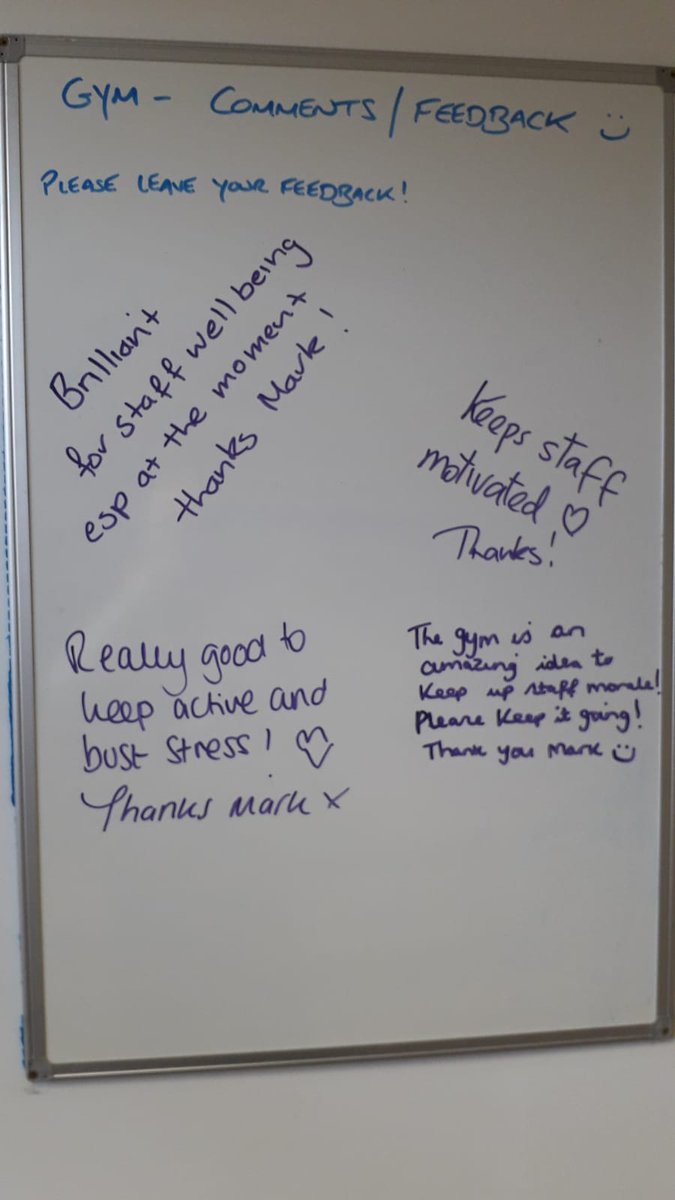 GYM - COMMENTS / FEEDBACK
PLEASE LEAVE YOUR FEEDBACK!
Brilliant
for staff well being
esp at the moment
thanks Mark!
Keeps staff
motivated
Thanks!
Really good to
keep active and
bust stress!
Thanks Mark x
The gym is an
amazing idea to
Keep up staff morale!
Please Keep it going!
Thank you Mark